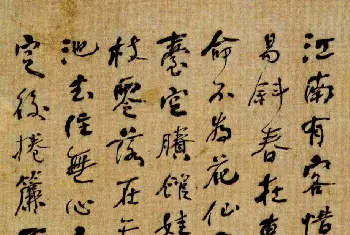 江南有客惜
易斜春在東
命不為花仙
臺空賸館娃
枝零落在
池去住無心
定後捲簾